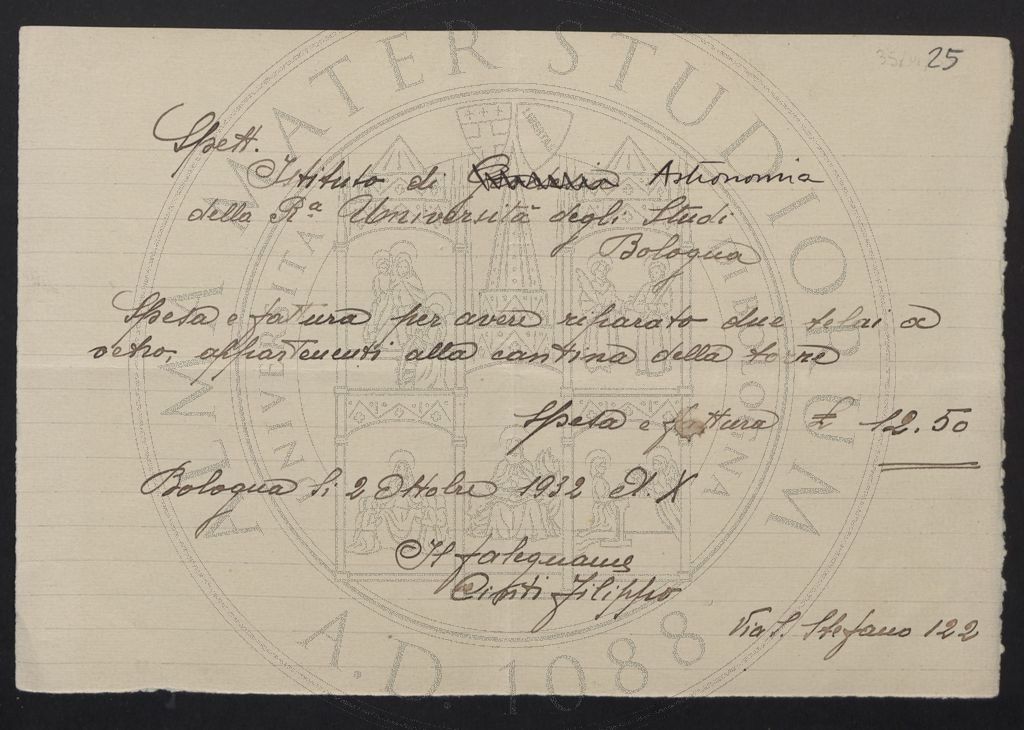 25
Spett.
Istituto di Astronomia
della Rª Università degli Studi
Bologna
Spesa e fattura per avere riparato due telai a
vetro, appartenenti alla cantina della torre
Spesa e fattura £ 12.50
Bologna li 2 Ottobre 1932 A. X
Il falegname
Cinti Filippo
Via S. Stefano 122
ALMA MATER STUDIORUM
A.D. 1088